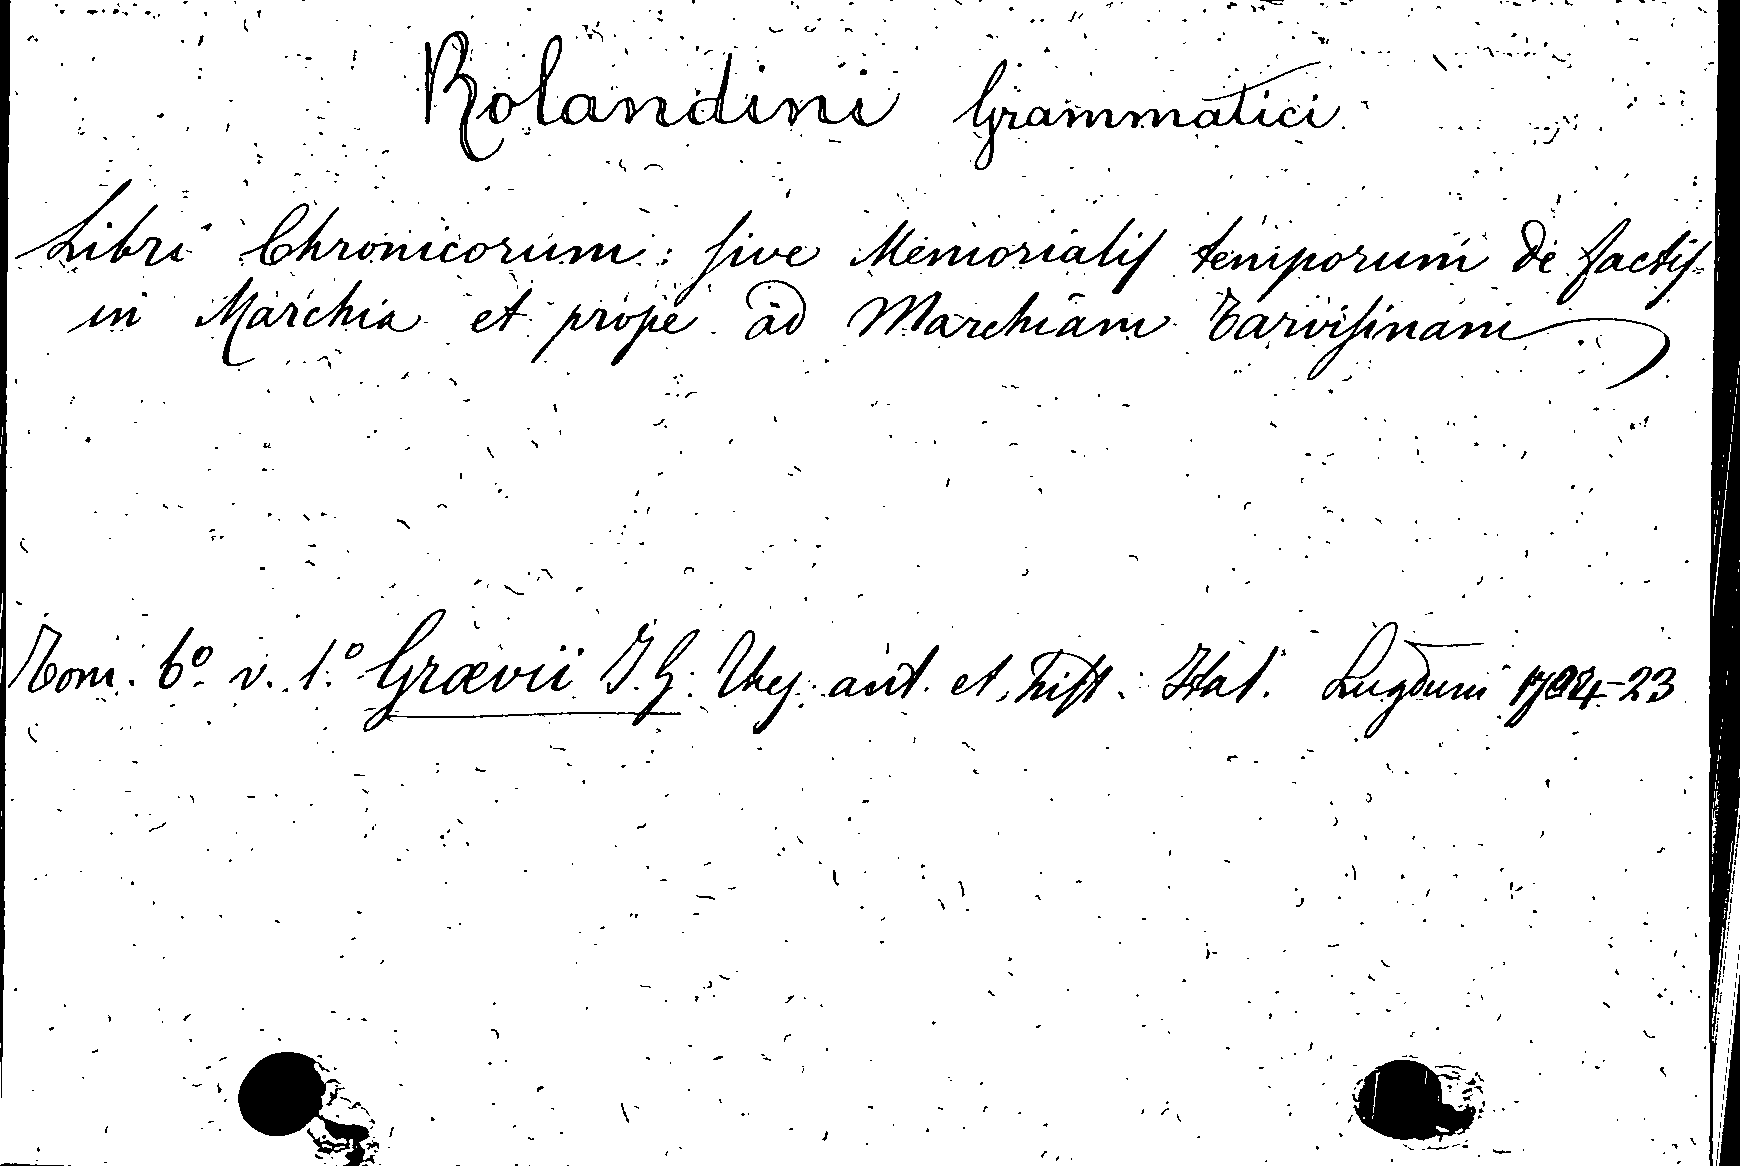 Rolandini Grammatici
Libri Chronicorum: sive Memorialis temporum de factis
in Marchia et prope ad Marchiam Tarvisinam
Tom. 6º v. 1.º Grævii J. G. Thes. ant. et hist. Ital. Lugduni 1704-23